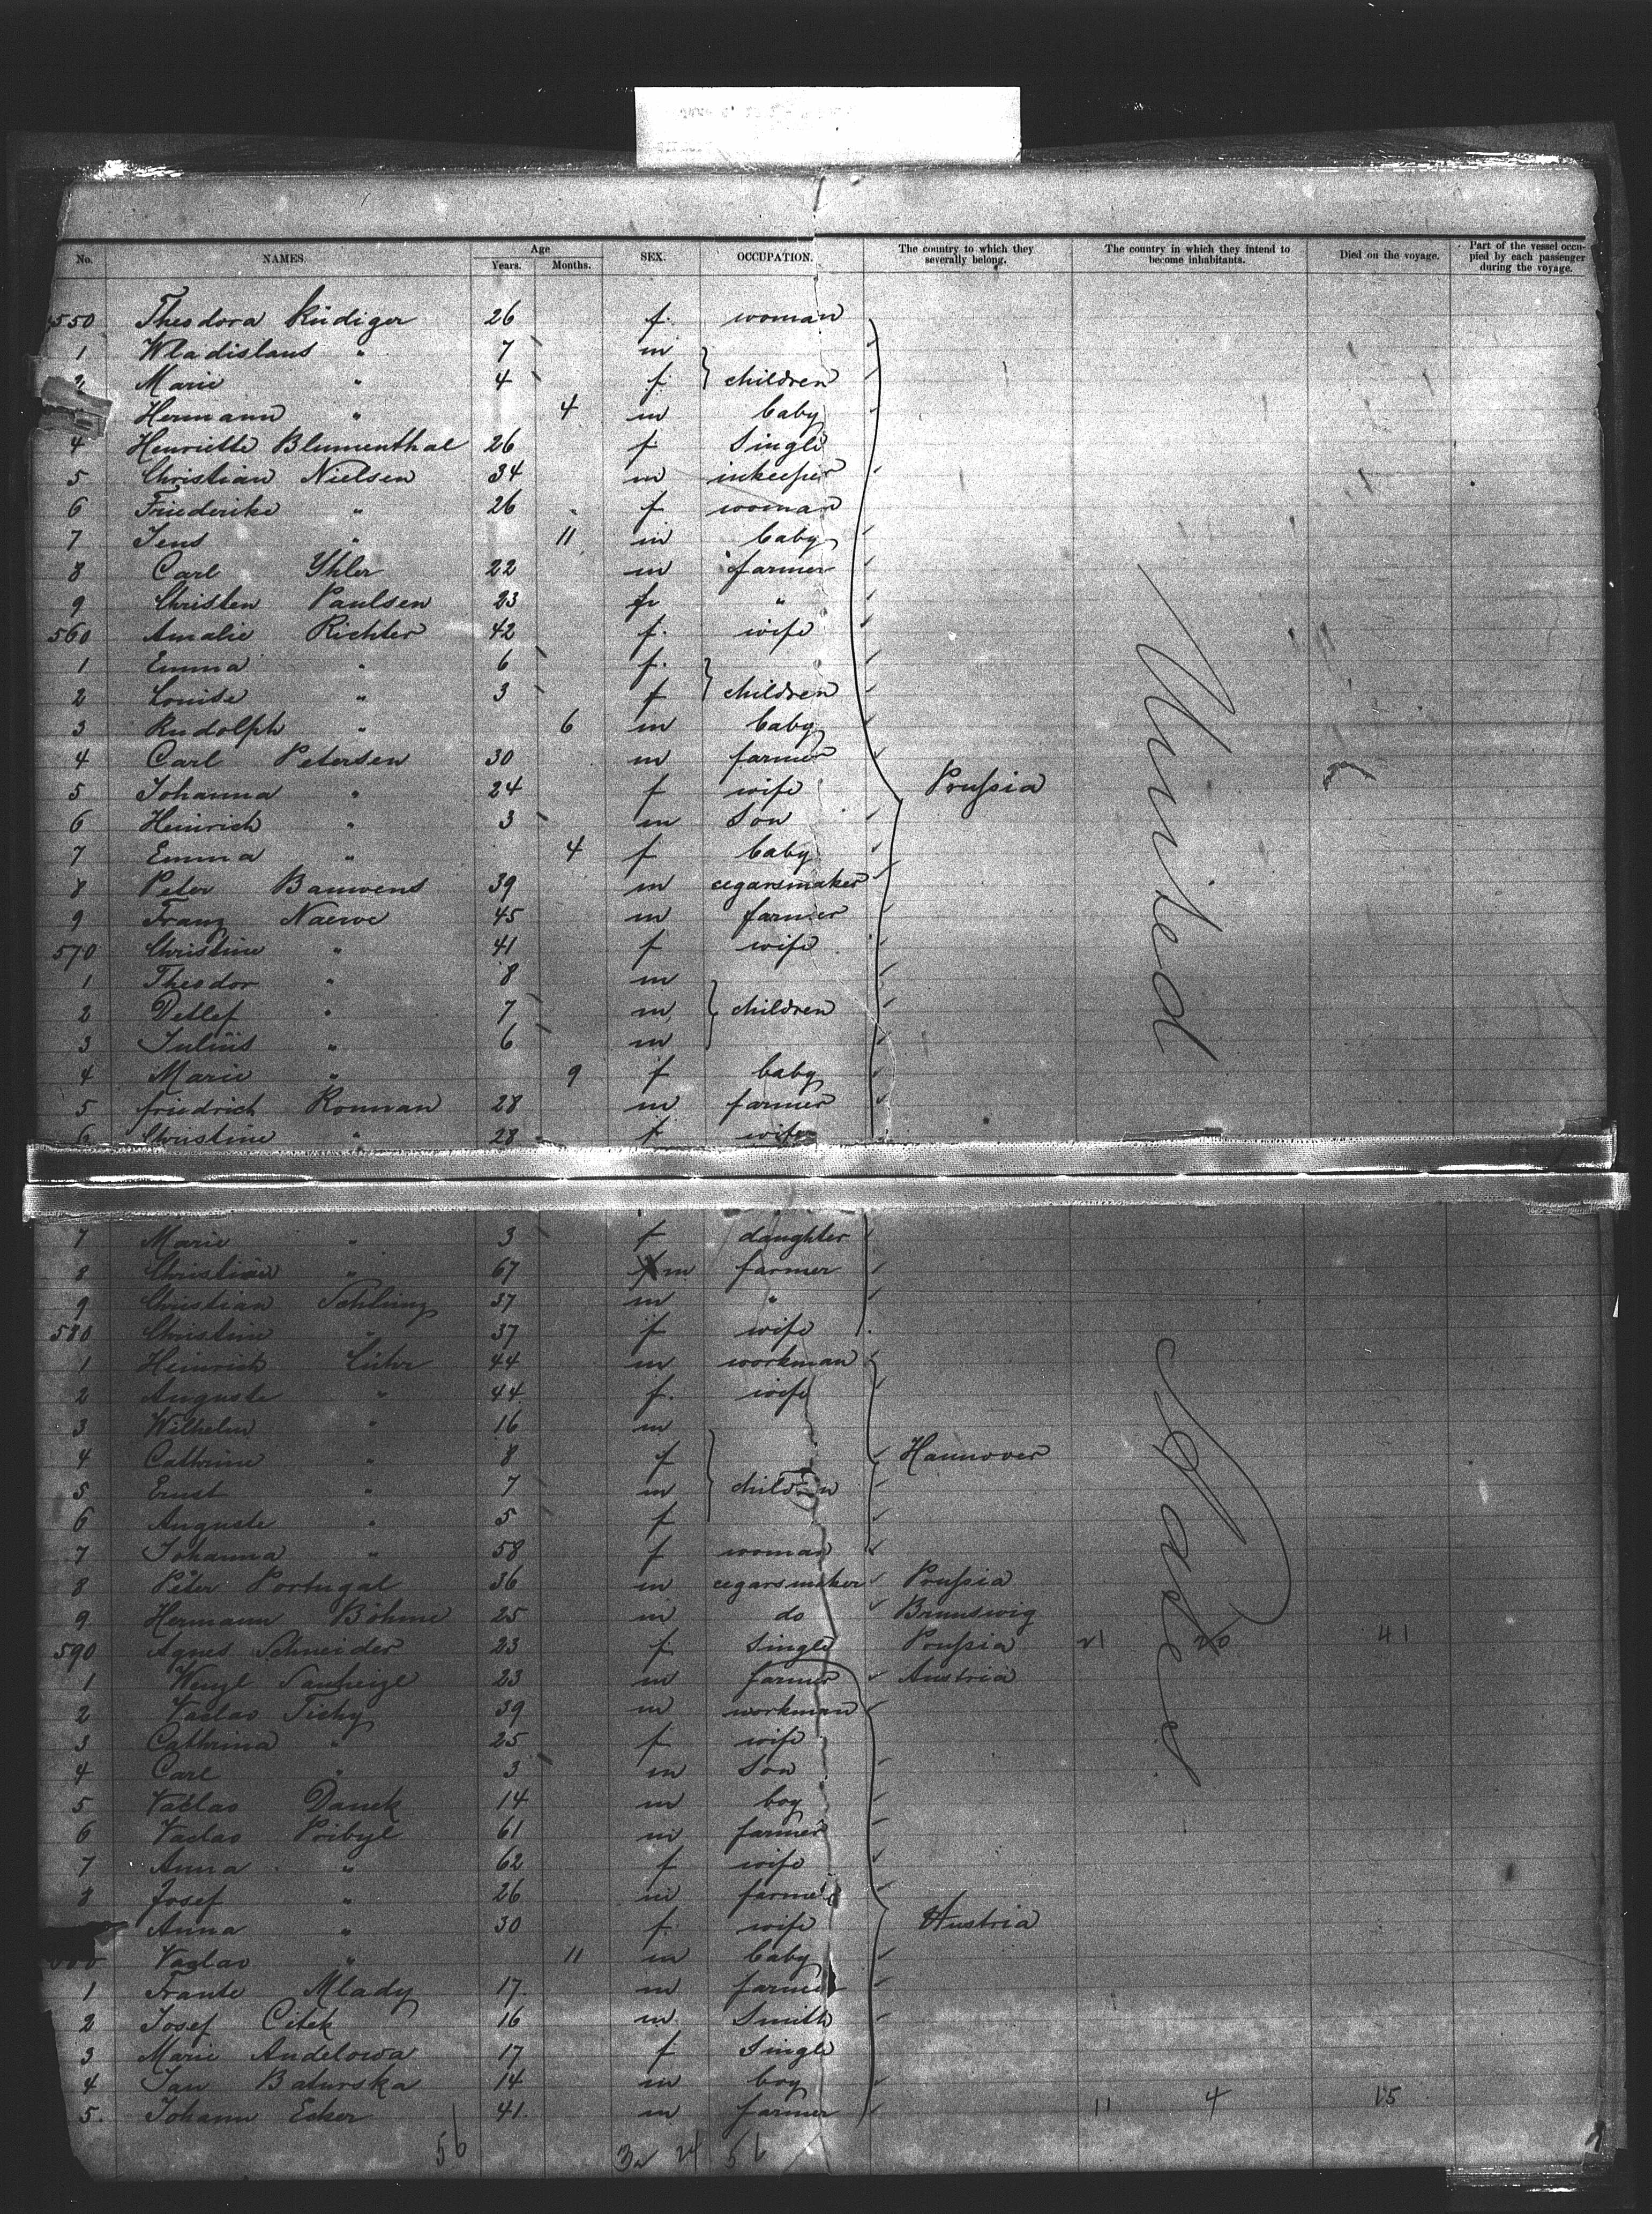 No. NAMES. Age Years. Months. SEX. OCCUPATION. The country to which they severally belong. The country in which they intend to become inhabitants. Died on the voyage. Part of the vessel occupied by each passenger during the voyage.
550 Theodora Rüdiger 26 f. woman
1 Wladislaus " 7 m
2 Marie " 4 f. children
Hermann " 4 m baby
4 Henriette Blumenthal 26 f Single
5 Christian Nielsen 34 m inkeeper
6 Friederike " 26 f woman
7 Jens " 11 m baby
8 Carl Yhler 22 m farmer
9 Christen Paulsen 23 "
560 Amalie Richter 42 f. wife
1 Emma " 6 f.
2 Louise " 3 f children
3 Rudolph " 6 m baby
4 Carl Petersen 30 m farmer
5 Johanna " 24 f wife Prussia
6 Heinrich " 3 m Son
7 Emma " 4 f baby
8 Peter Bauwens 39 m cegarsmaker
9 Franz Naeve 45 m farmer
570 Christine " 41 f wife
1 Theodor " 8 m
2 Detlef " 7 m children
3 Julius " 6 m
4 Marie " 9 f baby
5 friedrich Rouwan 28 m farmer
6 Christine " 28 f wife
United
7 Marie " 3 f daughter
8 Christian " 67 m farmer
9 Christian Schlünz 37 m "
580 Christine " 37 f wife
1 Heinrich Lühr 44 m workman
2 Auguste " 44 f. wife
3 Wilhelm " 16 m
4 Cathrine " 8 f Hannover
5 Ernst " 7 m children
6 Auguste " 5 f
7 Johanna " 58 f woman
8 Peter Portugal 36 m cegarsmaker Prussia
9. Hermann Böhme 25 m do Brunswig
590 Agnes Schneider 23 f Single Prussia 21 20 41
1 Wenzl 23 m farmer Austria
2 Vaclav Tichy 39 m workman
3 Cathrina " 25 f wife
4 Carl " 3 m Son
5 Vaclav Danek 14 m boy
6 Vaclav Pribyl 61 m farmer
7 Anna " 62 f wife
8 Josef " 26 m farmer
Anna " 30 f wife Austria
Vaclav " 11 m baby
1 Frante Mlady 17. m farmer
2 Josef Citek 16 m. Smith
3 Marie Andelowa 17 f Single
4 Jan Baturska 14 m boy
5. Johann Ecker 41. m farmer 11 4 15
States
56 32 24 56